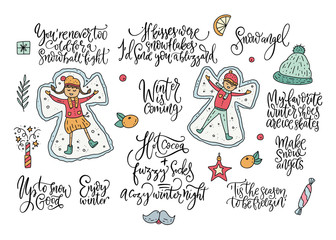 You're never too
old for a
Snowball fight
If kisses were
snowflakes
I'd send you a blizzard
Snow angel
Winter
is
Coming
My favorite
winter shoes
are ice skates
Hot
Cocoa
+
fuzzy Socks
=
a Cozy winter night
Make
snow
angels
Up to Snow
Good
Enjoy
winter
'Tis the season
to be freezin'